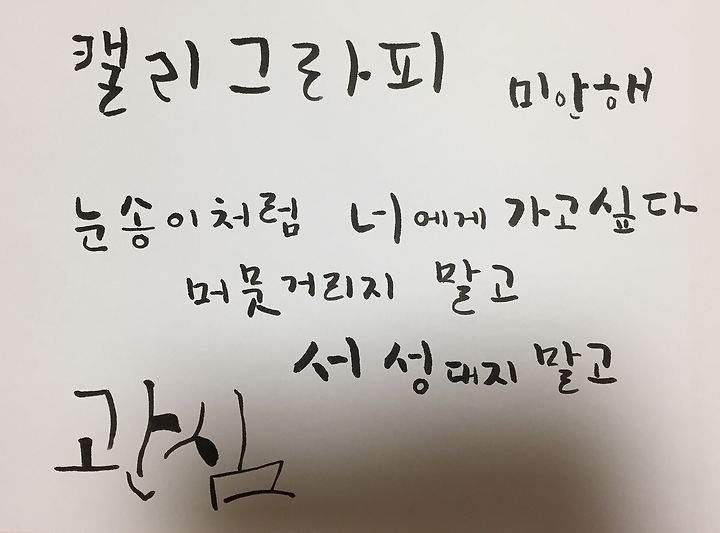 캘리그라피 미안해
눈송이처럼 너에게 가고싶다
머뭇거리지 말고
서성대지 말고
관심